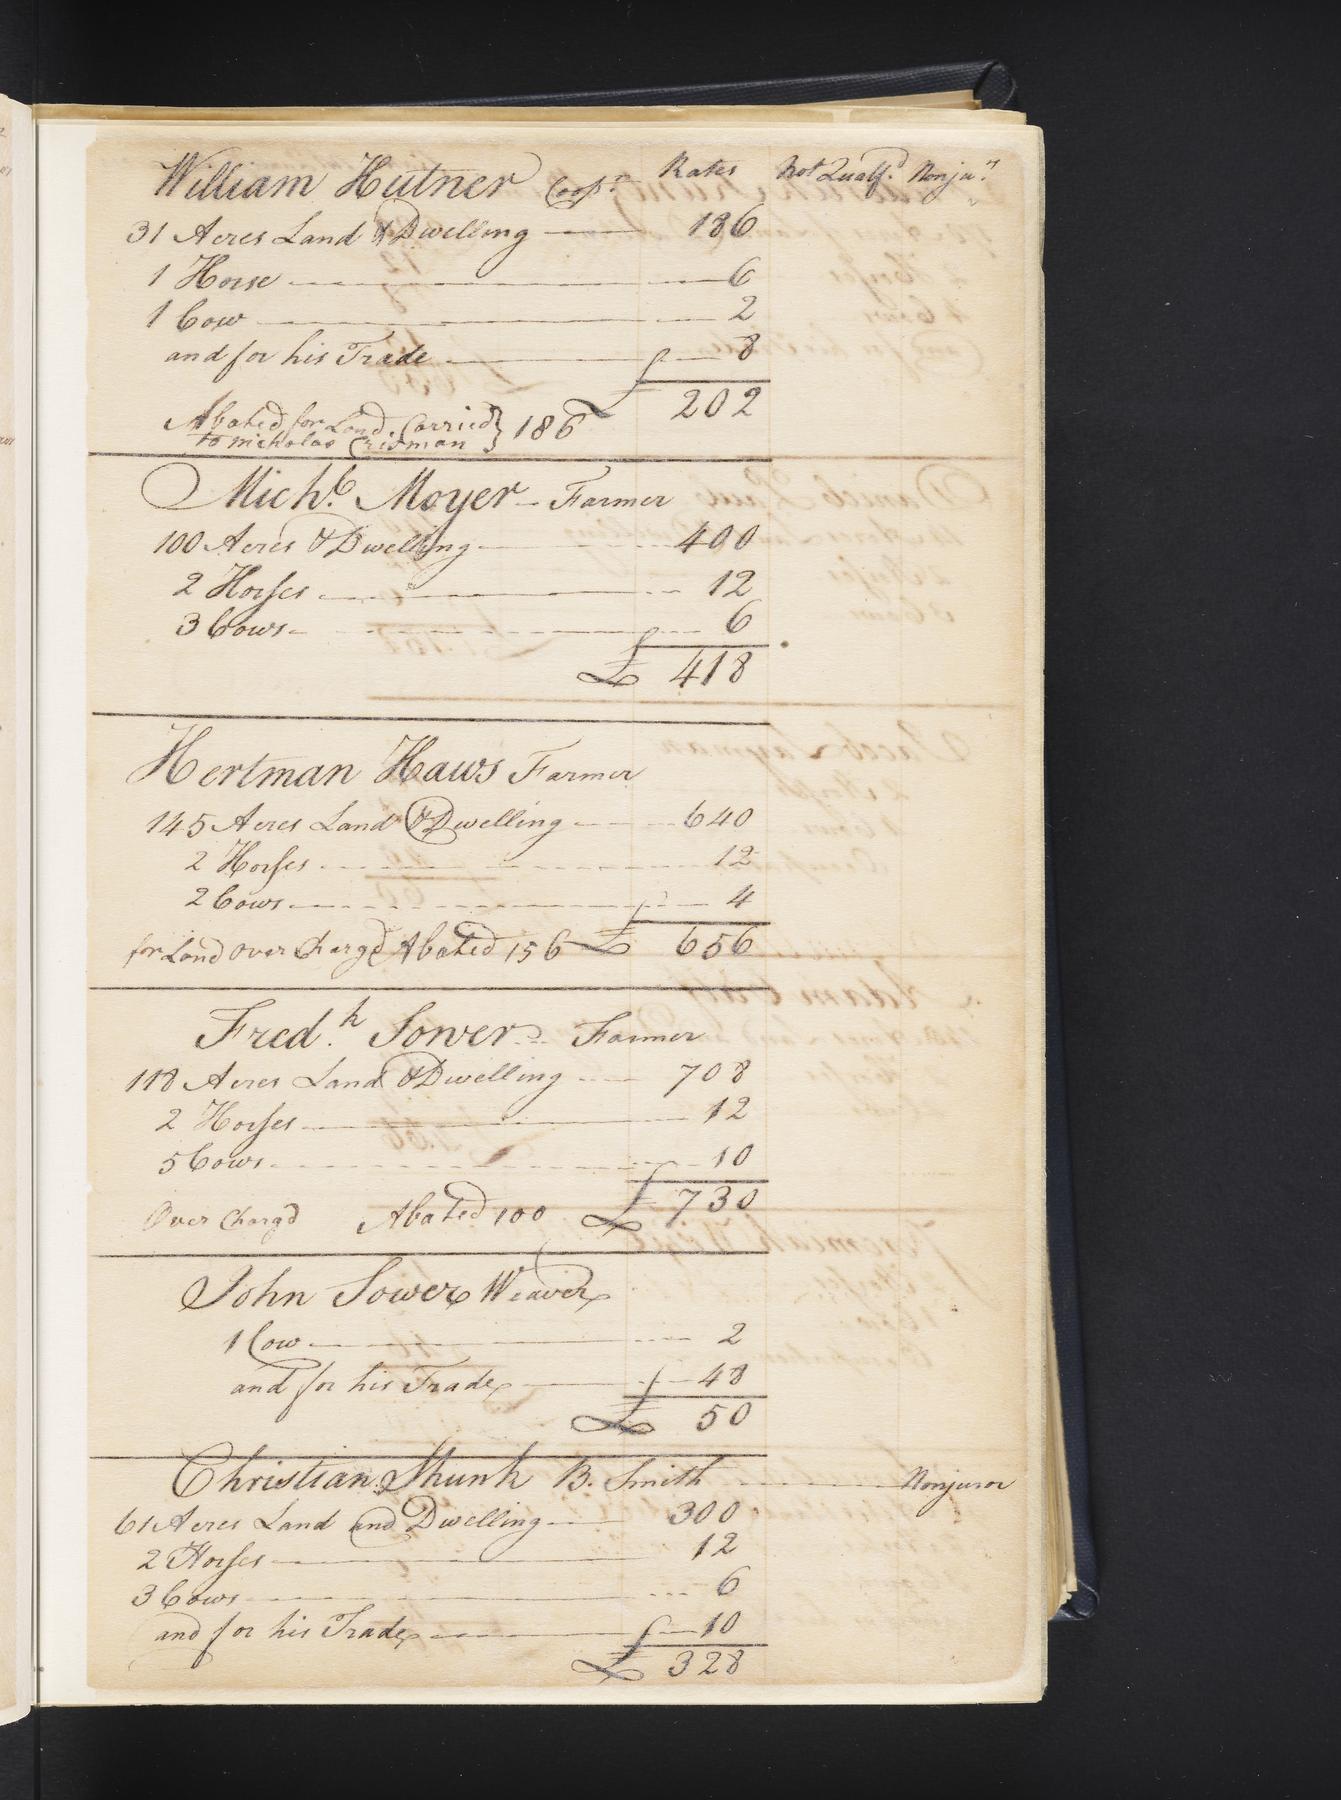 William Hutner Coop.r Rates Not Qualf.d Nonju.rs
31 Acres Land & Dwelling 186
1 Horse 6
1 Cow 2
and for his Trade 8
£ 202
Abated for Land Carried
to Nicholas Crisman } 186
Mich.l Moyer - Farmer
100 Acres & Dwelling 400
2 Horses 12
3 Cows 6
£ 418
Hertman Haws Farmer
145 Acres Land & Dwelling 640
2 Horses 12
2 Cows 4
for Land over Charg'd Abated 156 £ 656
Fred.k Sower Farmer
118 Acres Land & Dwelling 708
2 Horses 12
5 Cows 10
Over Charg'd Abated 100 £ 730
John Sower Weaver
1 Cow 2
and for his Trade 48
£ 50
Christian Shunk B. Smith Nonjuror
61 Acres Land and Dwelling 300
2 Horses 12
3 Cows 6
and for his Trade 10
£ 328